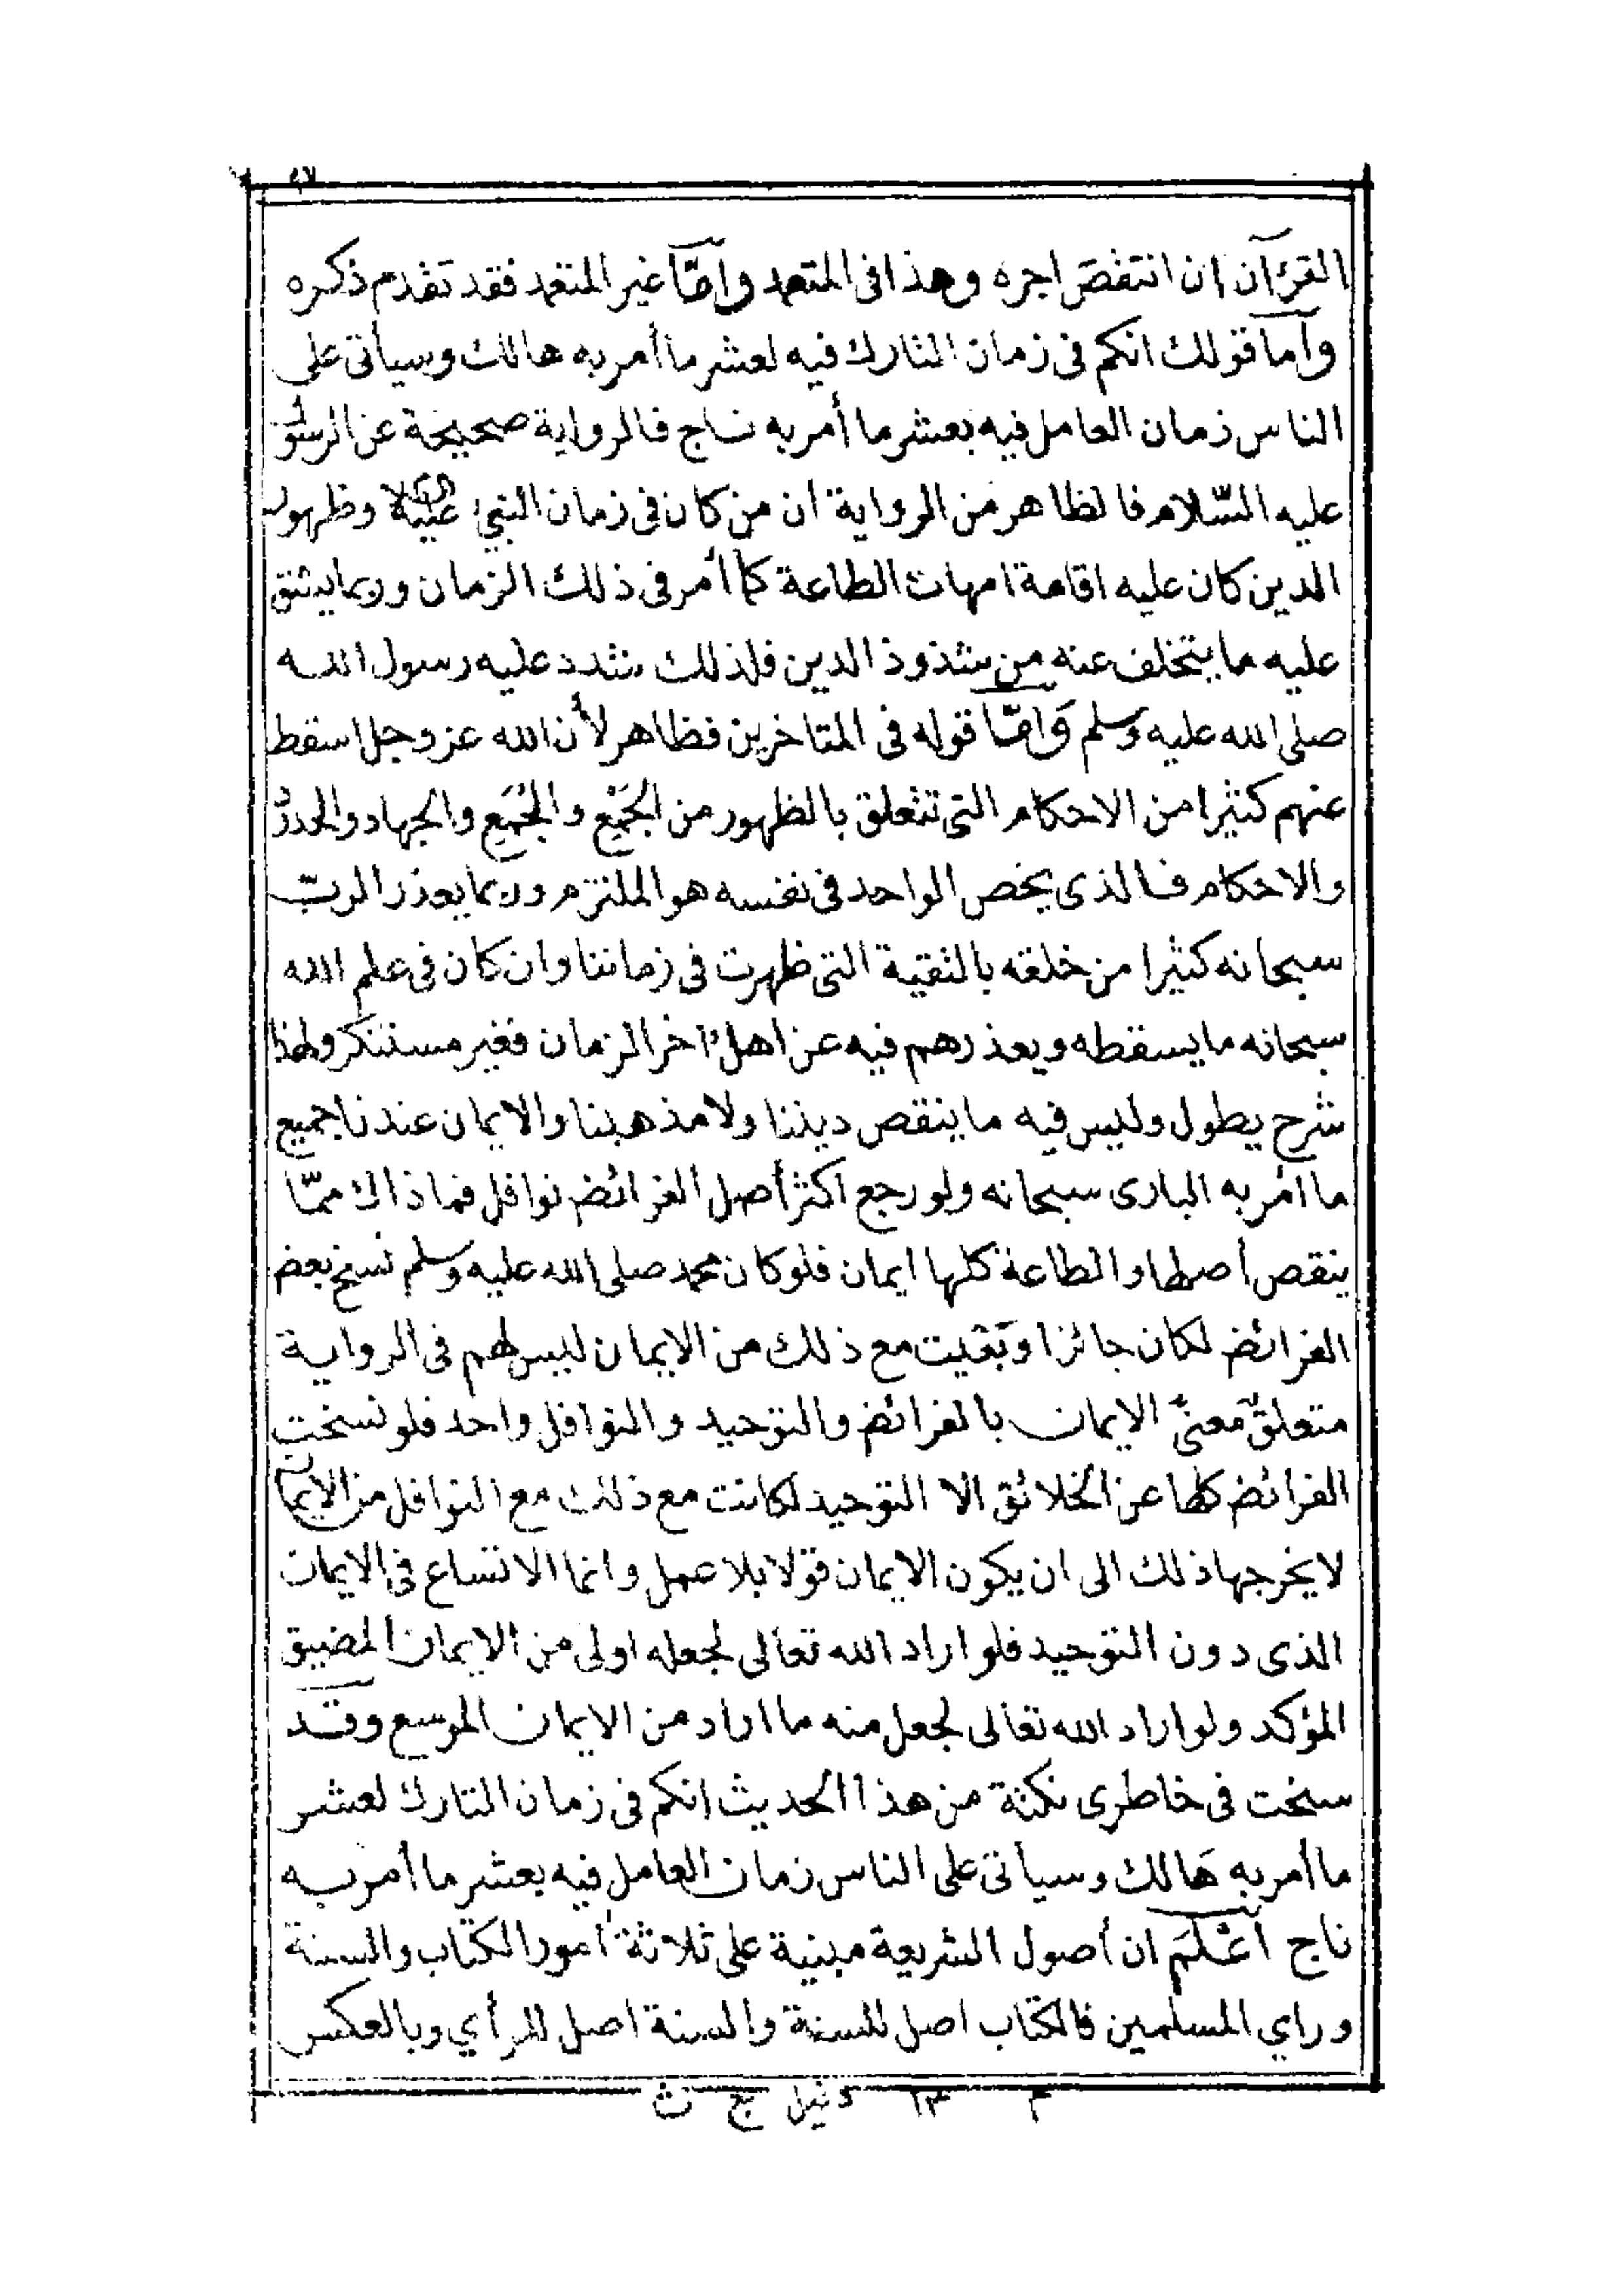 ٩٧
القرءان ان انتقص اجره وهذا فى المتعمد وامّا غير المتعمد فقد تقدم ذكره
وأما قولك انكم فى زمان التارك فيه لعشر ما أمر به هالك وسيأتى على
الناس زمان العامل فيه بعشر ما أمر به ناج فالرواية صحيحة عن الرسول
عليه السّلام فالظاهر من الرواية ان من كان فى زمان النبيء وظهور
الدين كان عليه اقامة امهات الطاعة كما أمر فى ذلك الزمان وربما يشق
عليه ما يتخلف عنه من شذوذ الدين فلذلك شدد عليه رسول الله
صلى الله عليه وسلم وَامّا قوله فى المتاخرين فظاهر لأن الله عز وجل اسقط
عنهم كثيرا من الاحكام التى تتعلق بالظهور من الجَمْع والجُمَع والجهاد والحدود
والاحكام فالذى يخص الواحد فى نفسه هو الملتزم وربما يعذر الربّ
سبحانه كثيرا من خلقه بالتقية التى ظهرت فى زماننا وان كان فى علم الله
سبحانه ما يسقطه ويعذرهم فيه عن اهل ءاخر الزمان فغير مستنكر ولهذا
شرح يطول وليس فيه ما ينقص ديننا ولا مذهبنا والايمان عندنا جميع
ما أمر به البارى سبحانه ولو رجع اكثر أصل الفرائض نوافل فما ذاك ممّا
ينقص أصلها والطاعة كلها ايمان فلو كان محمد صلى الله عليه وسلم نسخ بعض
الفرائض لكان جائزا وبَقيت مع ذلك من الايمان ليس لهم فى الرواية
متعلق معنى الايمان بالفرائض والتوحيد والنوافل واحد فلو نسخت
الفرائض كلها عن الخلائق الا التوحيد لكانت مع ذلك مع النوافل من الايمان
لا يخرجها ذلك الى ان يكون الايمان قولا بلا عمل وانما الاتساع فى الايمان
الذى دون التوحيد فلو اراد الله تعالى لجعله اولى من الايمان المضيق
المؤكد ولو اراد الله تعالى لجعل منه ما اراد من الايمان الموسع وقد
سنحت فى خاطرى نكتة من هذا الحديث انكم فى زمان التارك لعشر
ما أمر به هَالك وسيأتى على الناس زمان العامل فيه بعشر ما أمر به
ناج أعْلَمَ ان أصول الشريعة مبنية على ثلاثة أمور الكتاب والسنة
وراي المسلمين فالكتاب اصل للسنة والسنة اصل للرأي وبالعكس
م ١٣ دليل ج ث